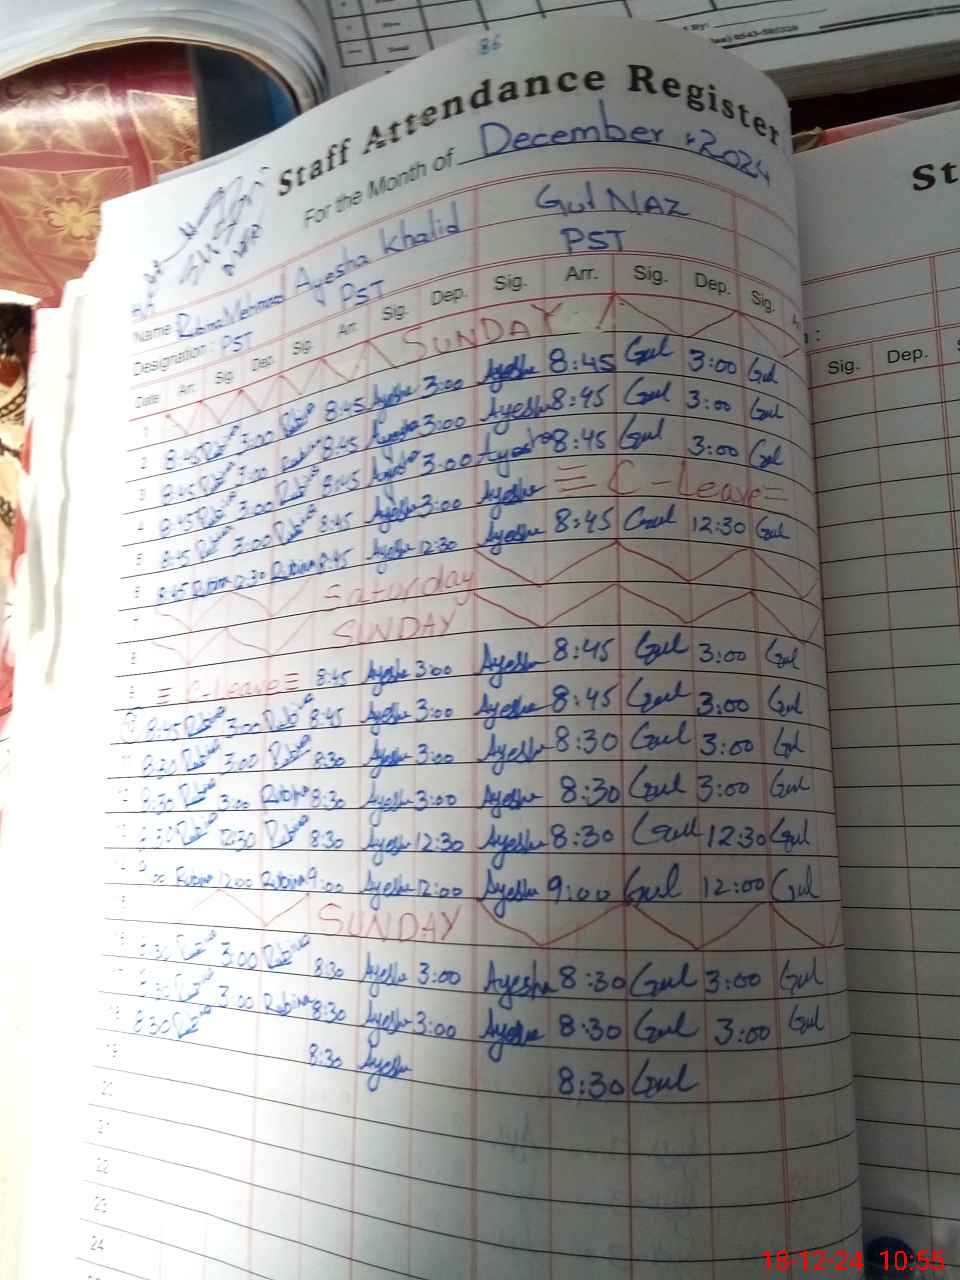 86
Staff Attendance Register
For the Month of December, 2024
Name Rubina Mehmood Ayesha Khalid Gul NAZ
Designation: PST PST PST
Date Arr. Sig. Dep. Sig. Arr. Sig. Dep. Sig. Arr. Sig. Dep. Sig.
1 SUNDAY
2 8:45 Rubina 3:00 Rubina 8:45 Ayesha 3:00 Ayesha 8:45 Gul 3:00 Gul
3 8:45 Rubina 3:00 Rubina 8:45 Ayesha 3:00 Ayesha 8:45 Gul 3:00 Gul
4 8:45 Rubina 3:00 Rubina 8:45 Ayesha 3:00 Ayesha 8:45 Gul 3:00 Gul
5 8:45 Rubina 3:00 Rubina 8:45 Ayesha 3:00 Ayesha C-Leave
6 8:45 Rubina 12:30 Rubina 8:45 Ayesha 12:30 Ayesha 8:45 Gul 12:30 Gul
7 Saturday
8 SUNDAY
9 C-Leave 8:45 Ayesha 3:00 Ayesha 8:45 Gul 3:00 Gul
10 8:45 Rubina 3:00 Rubina 8:45 Ayesha 3:00 Ayesha 8:45 Gul 3:00 Gul
11 8:30 Rubina 3:00 Rubina 8:30 Ayesha 3:00 Ayesha 8:30 Gul 3:00 Gul
12 8:30 Rubina 3:00 Rubina 8:30 Ayesha 3:00 Ayesha 8:30 Gul 3:00 Gul
13 8:30 Rubina 12:30 Rubina 8:30 Ayesha 12:30 Ayesha 8:30 Gul 12:30 Gul
14 9:00 Rubina 12:00 Rubina 9:00 Ayesha 12:00 Ayesha 9:00 Gul 12:00 Gul
15 SUNDAY
16 8:30 Rubina 3:00 Rubina 8:30 Ayesha 3:00 Ayesha 8:30 Gul 3:00 Gul
17 8:30 Rubina 3:00 Rubina 8:30 Ayesha 3:00 Ayesha 8:30 Gul 3:00 Gul
18 8:30 Rubina 8:30 Ayesha 8:30 Gul
19
20
21
22
23
24
St
Sig. Dep.
Total
18-12-24 10:55